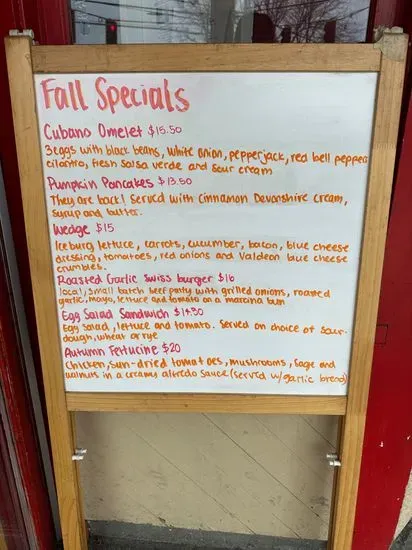 Fall Specials
Cubano Omelet $15.50
3 eggs with black beans, white onion, pepperjack, red bell pepper
cilantro, fresh salsa verde and sour cream
Pumpkin Pancakes $13.50
They are back! Served with cinnamon Devonshire cream,
syrup and butter.
Wedge $15
Iceburg lettuce, carrots, cucumber, bacon, blue cheese
dressing, tomatoes, red onions and Valdeon blue cheese
crumbles.
Roasted Garlic Swiss burger $16
local, small batch beef patty with grilled onions, roasted
garlic, mayo, lettuce and tomato on a marcina bun
Egg Salad Sandwich $14.50
Egg Salad, lettuce and tomato. Served on choice of sour-
dough, wheat or rye
Autumn Fettucine $20
Chicken, sun-dried tomatoes, mushrooms, Sage and
walnuts in a creamy alfredo sauce (served w/garlic bread)